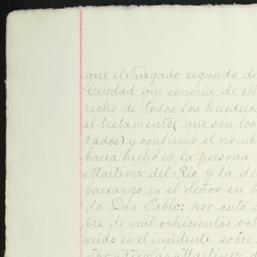 que el Juzgado segundo de
Ciudad que conocia de el
recho de todos los heredero
el testamento (que son los
tados) y confirmó el nomb
bacea hecho en la persona
Martinez del Rio y la de
baceazgo en el Señor su h
do Don Pablo: por auto
bre de mil ochocientos och
veido en el incidente sobre
Nicolas Martinez d